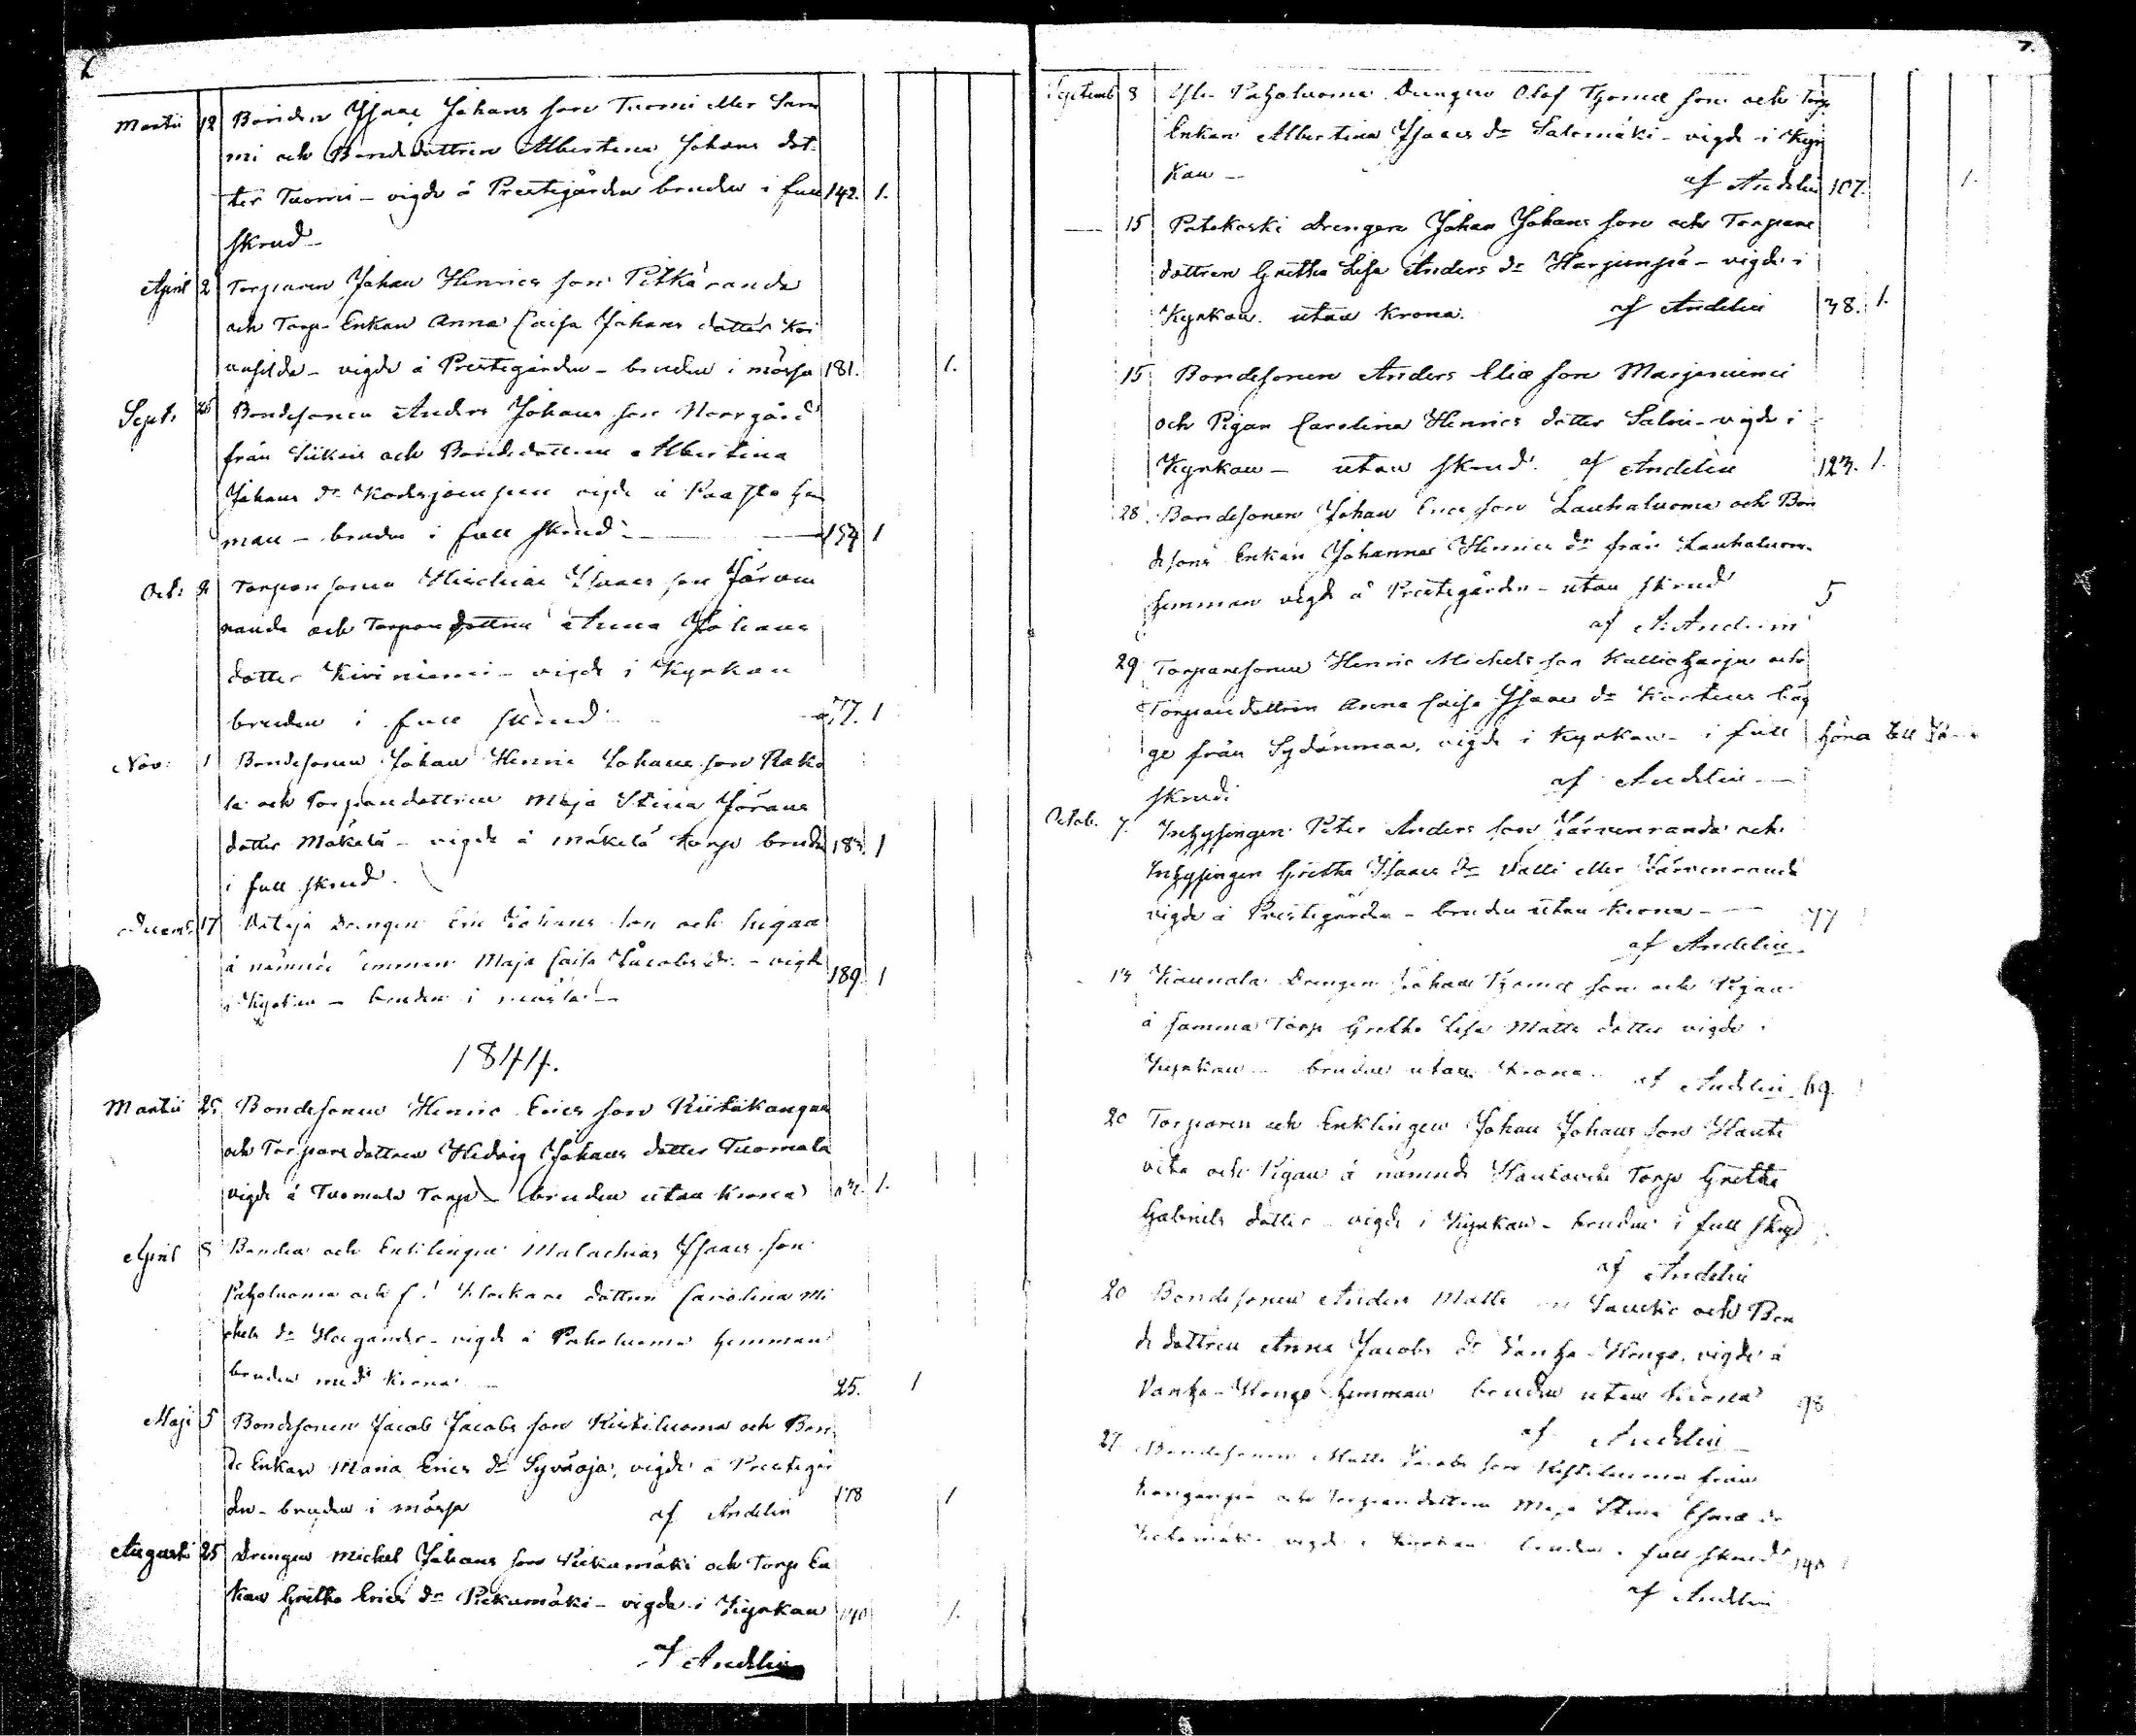 Martii 12 Bonden Isaac Johans son Tuomi eller Sar
mi och Bondedottren Albertina Johans dot
ter Tuomi - vigde å Prestegården bruden i full 142. 1.
skrud -
April 2 Torparen Johan Henrics son Pitkäranda
och Torp. Enkan Anna Caisa Johans dotter Koi
- vigde å Prestegården - bruden i mössa 181. 1.
Sept. Bondesonen Anders Johans son Norrgård
från och Bondedottren Albertina
Johans dr vigde å hem
man - bruden i full skrud - 154 1
Oct: Torpare sonen Isaacs son Järven
randa och Torpare dottren Anna Johans
dotter Kiviniemi - vigde i Kyrkan
bruden i full skrud 77. 1
Nov: 1 Bondesonen Johan Henric Johans son Rako
la och Torparedottren Maja Stina Jörans
dotter Mäkelä - vigde å Mäkelä Torp bruden 183. 1
i full skrud.
Decemb. 17 Drengen Eric Johans son och Pigan
å nämnde hemman Maja Caisa Jacobs dr. - vigde 189. 1
i Kyrkan - bruden i
1844.
Martii 25 Bondesonen Henric Erics son Riitakangas
och Torpare dottren Hedvig Johans dotter Tuomala
vigde å Tuomala Torp - bruden utan Krona 1.
April 8 Bonden och Enklingen Malachias Isaacs son
Paholuoma och f. Klockare dottren Carolina Mi
chels dr Hagander - vigde å Paholuoma hemman
bruden med Krona - 25. 1
Maji 5 Bondesonen Jacob Jacobs son Ristiluoma och Bon
de Enkan Maria Erics dr Syväoja, vigde å Prestegår
den - bruden i mössa af Andelin 178 1
Augusti 25 Drengen Michel Johans son Piekumäki och Torp. En
kan Gretha Erics dr Piekumäki - vigde i Kyrkan 140 1.
af Andelin
7.
Septemb 8 Paholuoma Drengen Olof Thomæ son och Torp.
Enkan Albertina Isaacs dr Salomäki - vigde i Kyr
kan - af Andelin 107. 1.
15 Patokoski Drengen Johan Johans son och Torpare
dottren Gretha Lisa Anders dr Harjunpä - vigde i
Kyrkan. utan Krona. af Andelin 38. 1.
15 Bondesonen Anders Eliæ son Marjeniemi
och Pigan Carolina Henrics dotter Salmi - vigde i
Kyrkan - utan skrud. af Andelin 123. 1.
28. Bondesonen Johan Erics son Lauhaluoma och Bon
desons Enkan Johanna Henrics dr från Lauhaluom.
hemman vigde å Prestegården - utan skrud 5
af A. Andelin
29 Torparesonen Henric Michels son Kallioharju och
Torparedottren Anna Caisa Isaacs dr
ge från Sydänmaa, vigde i Kyrkan - i full höra till
skrud. af Andelin -
Octob. 7. Inhysingen Peter Anders son Järvenranda och
Inhysingen Gretha Isaacs dr Valli eller Järvenranda
vigde å Prestegården - bruden utan Krona - 77
af Andelin -
13 Kaunola Drengen Johan Thomæ son och Pigan
å samma Torp Gretha Lisa Matts dotter vigde i
Kyrkan - bruden utan Krona. af Andelin 69.
20 Torparen och Enklingen Johan Johans son Hauto
vita och Pigan å nämnde Torp Gretha
Gabriels dotter - vigde i Kyrkan - bruden i full skrud
af Andelin
20 Bondesonen Anders Matts och Bon
de dottren Anna Jacobs dr Vanha-Hongo, vigde å
Vanha-Hongo hemman bruden utan Krona 98
af Andelin -
27 Bondesonen Matts Jacobs son Ristiluoma från
och Torpare dottren Maja Stina Esaiæ dr
vigde i Kyrkan bruden i full skrud 140
af Andelin